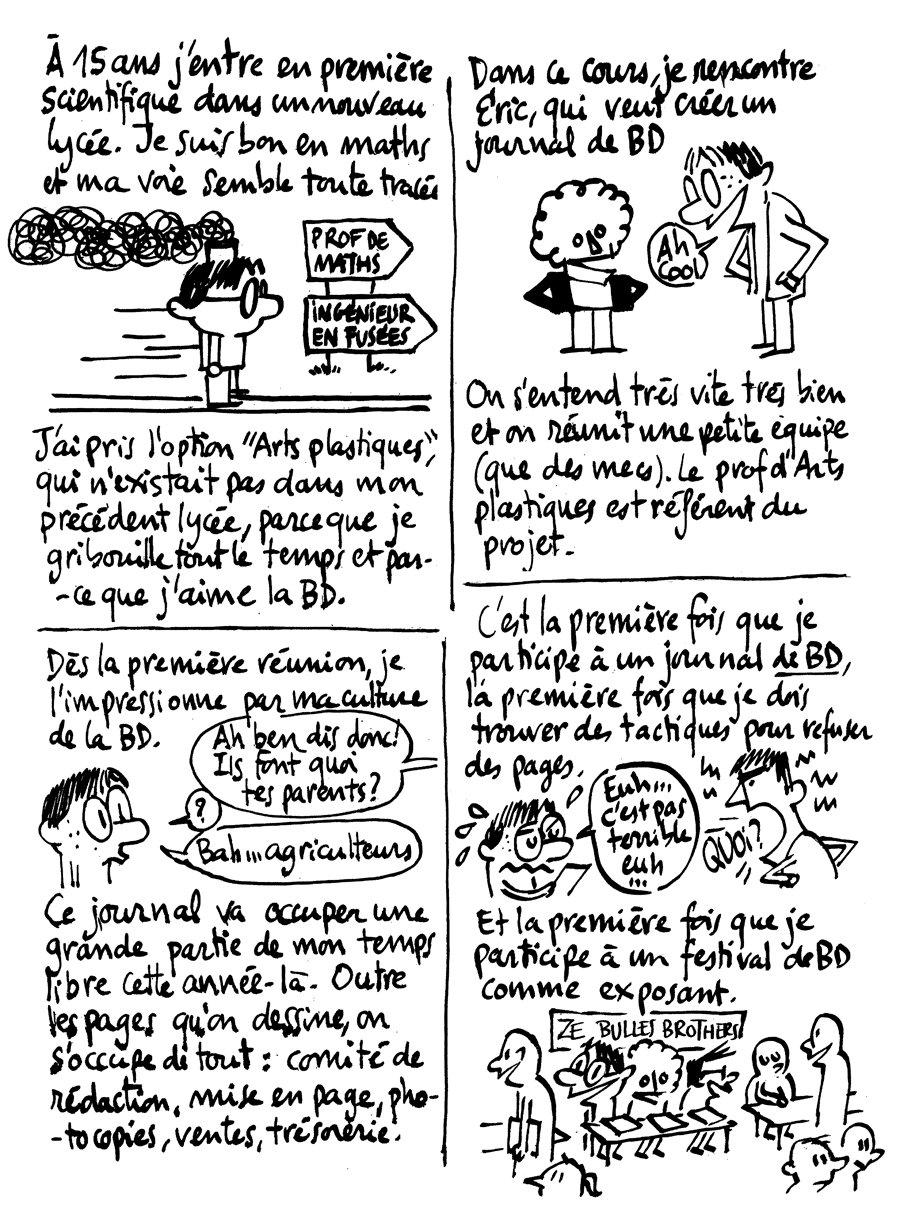 À 15 ans j'entre en première
scientifique dans un nouveau
lycée. Je suis bon en maths
et ma voie semble toute tracée
PROF DE
MATHS
INGÉNIEUR
EN FUSÉES
J'ai pris l'option "Arts plastiques",
qui n'existait pas dans mon
précédent lycée, parce que je
gribouille tout le temps et par-
-ce que j'aime la BD.
Dans ce cours, je rencontre
Éric, qui veut créer un
journal de BD
Ah
cool
On s'entend très vite très bien
et on réunit une petite équipe
(que des mecs). Le prof d'Arts
plastiques est référent du
projet.
Dès la première réunion, je
l'impressionne par ma culture
de la BD.
Ah ben dis donc!
Ils font quoi
tes parents?
?
Bah... agriculteurs
Ce journal va occuper une
grande partie de mon temps
libre cette année-là. Outre
les pages qu'on dessine, on
s'occupe de tout : comité de
rédaction, mise en page, pho-
-tocopies, ventes, trésorerie.
C'est la première fois que je
participe à un journal de BD,
la première fois que je dois
trouver des tactiques pour refuser
des pages.
Euh...
c'est pas
terrible
euh
...
QUOI?
Et la première fois que je
participe à un festival de BD
comme exposant.
ZE BULLES BROTHERS